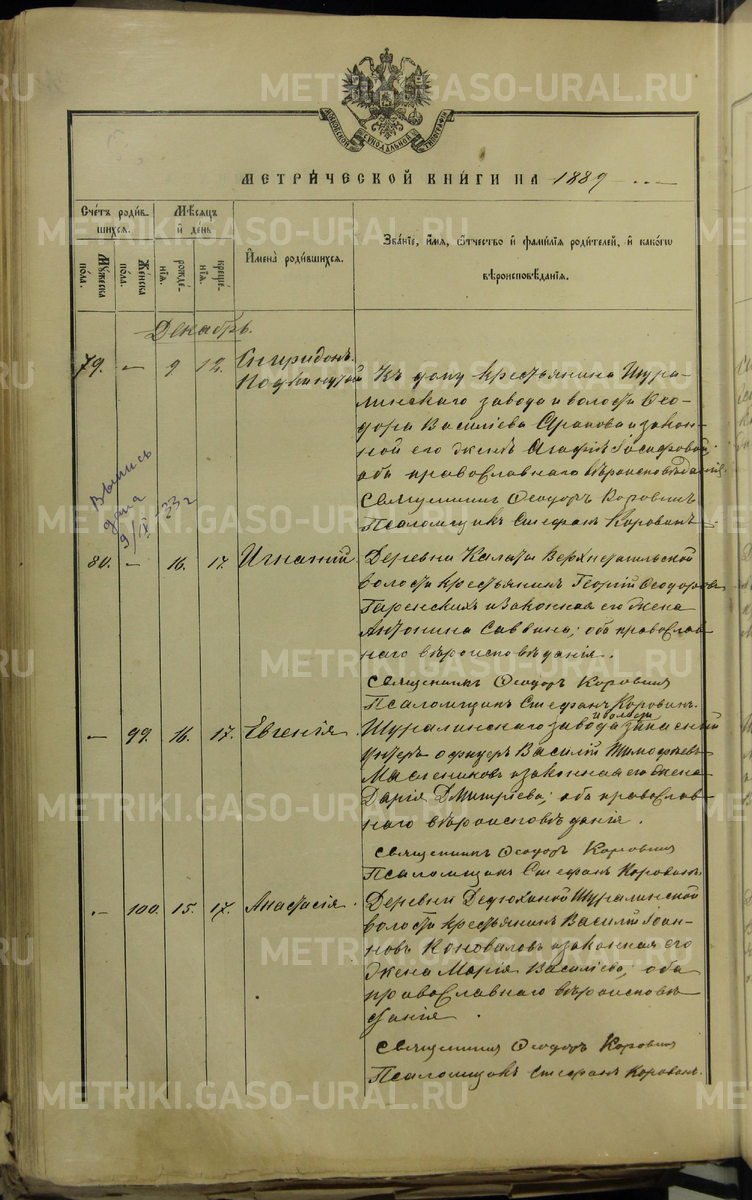 МОСКОВСКОЙ СѴНОДАЛЬНОЙ ТИПОГРАФІИ
МЕТРИ́ЧЕСКОЙ КНИ́ГИ НА 1889
Сче́тъ роди́в-
шихся.
Мѣ́сяцъ
и́ де́нь
Мꙋ́жеска
по́ла.
Же́нска
по́ла.
рожде́-
нїѧ.
креще́-
нїѧ.
И҆мена̀ роди́вшихся.
Зва́нїе, и҆́мя, ѻ҆́тчество и҆ фами́лїя роди́телей, и҆ како́гѡ
вѣроисповѣ́данїя.
Декабрь.
79. — 9 12. Спиридонъ
Подкинутый
Къ дому крестьянина Шура-
линскаго завода и волости Ѳео-
дора Василіева Арапова и закон-
ной его женѣ Агафіи Іосафовой;
оба православнаго вѣроисповѣданія.
Священникъ Ѳеодоръ Коровинъ
Псаломщикъ Стефанъ Коровинъ.
Выпись
дана
9/IV-33 г
80. — 16. 17. Игнатій.
Деревни Калаты Верхнетагильской
волости крестьянинъ Георгій Ѳеодоровъ
Гаренскихъ и законная его жена
Антонина Саввина; оба православ-
наго вѣроисповѣданія.
Священникъ Ѳеодоръ Коровинъ
Псаломщикъ Стефанъ Коровинъ.
— 99. 16. 17. Евгенія.
Шуралинскаго завода и волости запасный
унтеръ офицеръ Василій Тимофѣевъ
Маслениковъ и законная его жена
Дарія Дмитріева; оба православ-
наго вѣроисповѣданія.
Священникъ Ѳеодоръ Коровинъ
Псаломщикъ Стефанъ Коровинъ.
— 100. 15. 17. Анастасія.
Деревни Дедюхиной Шуралинской
волости крестьянинъ Василій Іоан-
новъ Коноваловъ и законная его
жена Марія Василіева; оба
православнаго вѣроисповѣ-
данія.
Священникъ Ѳеодоръ Коровинъ
Псаломщикъ Стефанъ Коровинъ.
METRIKI.GASO-URAL.RU